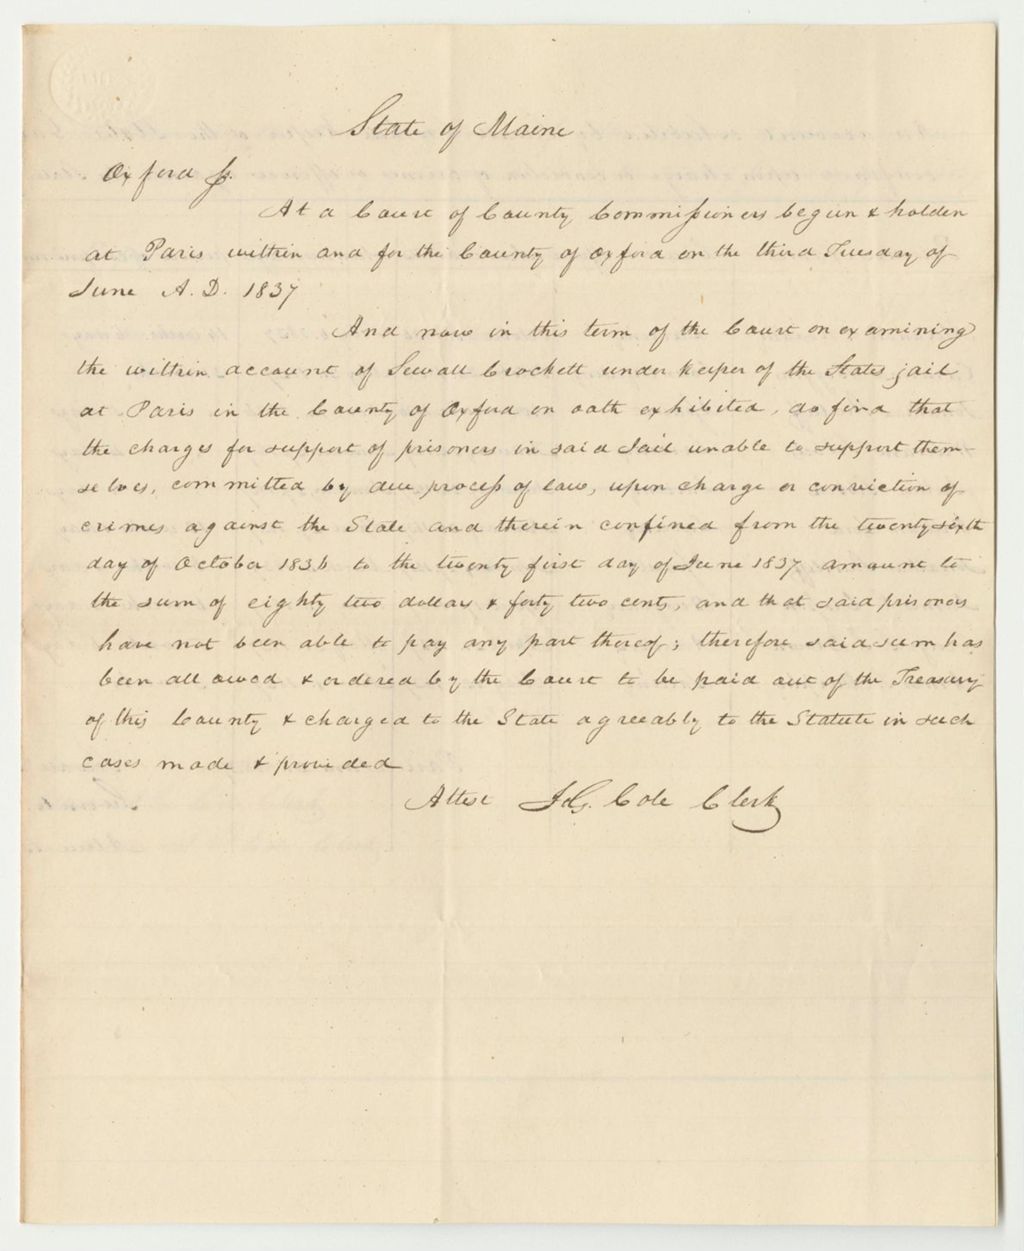 State of Maine
Oxford ss.
At a Court of County Commissioners begun & holden
at Paris within and for the County of Oxford on the third Tuesday of
June A. D. 1837
And now in this term of the Court on examining
the within account of Sewall Crockett under keeper of the States jail
at Paris in the County of Oxford on oath exhibited, do find that
the charges for support of prisoners in said Jail unable to support them-
selves, committed by due process of law, upon charge or conviction of
crimes against the State and therein confined from the twenty sixth
day of October 1836 to the twenty first day of June 1837 amount to
the sum of eighty two dollars & forty two cents, and that said prisoners
have not been able to pay any part thereof; therefore said sum has
been allowed & ordered by the Court to be paid out of the Treasury
of this County & charged to the State agreeably to the Statute in such
cases made & provided
Attest J. G. Cole Clerk